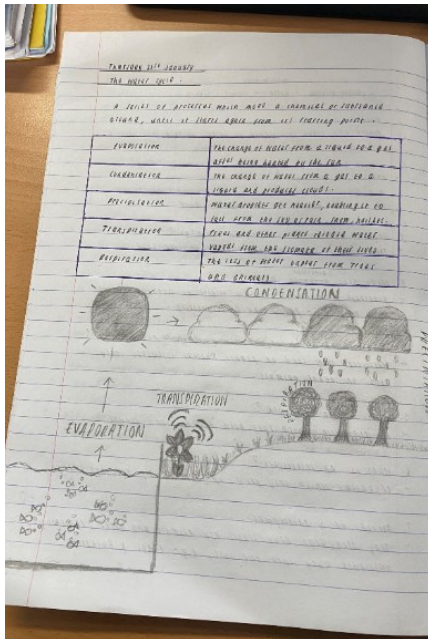 Thursday 21st January
The water cycle.
A series of processes which move a chemical or substance
around, until it starts again from its starting point.
Evaporation
The change of water from a liquid to a gas
after being heated by the sun
Condensation
The change of water from a gas to a
liquid and produces clouds.
Precipitation
Water droplets get heavier, causing it to
fall from the sky as rain, snow,
Transpiration
Trees and other plants release water
vapour from the stomata of their leaves
Respiration
The loss of water vapour from trees
and animals
CONDENSATION
TRANSPIRATION
EVAPORATION